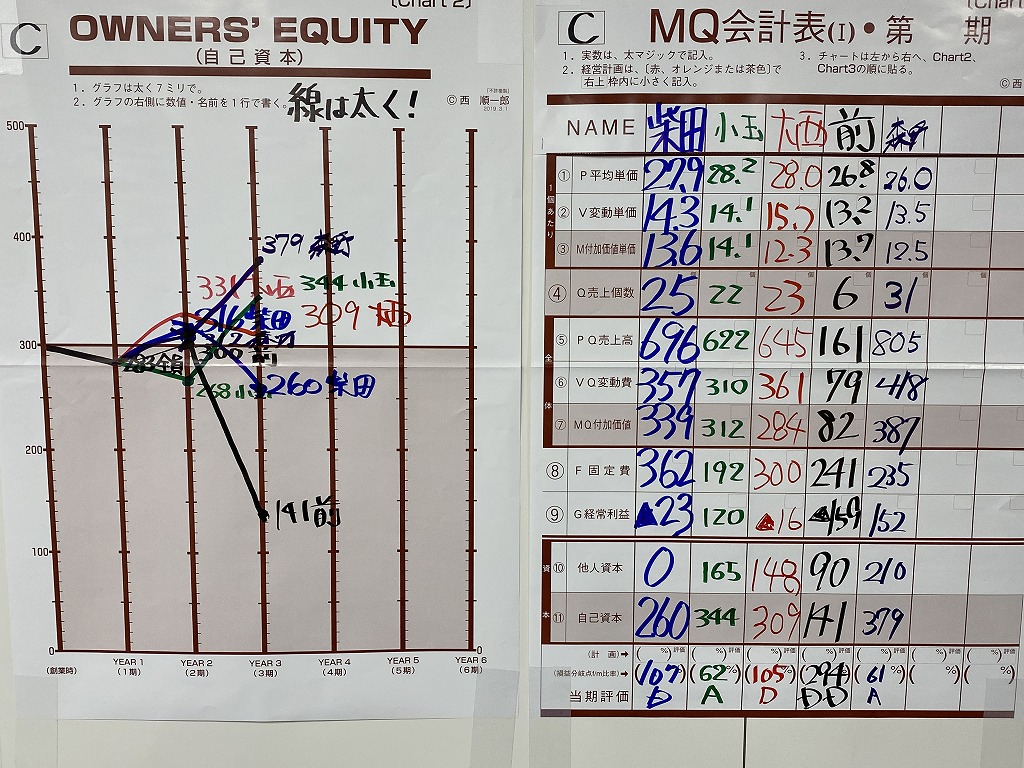 (Chart 2)
C
OWNERS' EQUITY
(自己資本)
1. グラフは太く7ミリで。
2. グラフの右側に数値・名前を1行で書く。
線は太く!
(不許複製)
© 西 順一郎
2019.3.1
500
400
300
200
100
0
379 森野
331 大西
344 小玉
309 大西
260 柴田
283 全員
268 小玉
141 前
(創業時)
YEAR 1
(1期)
YEAR 2
(2期)
YEAR 3
(3期)
YEAR 4
(4期)
YEAR 5
(5期)
YEAR 6
(6期)
(Chart
C
MQ会計表(I)・第 期
1. 実数は、太マジックで記入。
2. 経営計画は、(赤、オレンジまたは茶色)で
右上枠内に小さく記入。
3. チャートは左から右へ、Chart2、
Chart3の順に貼る。
© 西
NAME 柴田 小玉 大西 前 森野
1個あたり
① P平均単価 27.9 28.2 28.0 26.8 26.0
② V変動単価 14.3 14.1 15.7 13.2 13.5
③ M付加価値単価 13.6 14.1 12.3 13.7 12.5
④ Q売上個数 25 22 23 6 31
全体
⑤ PQ売上高 696 622 645 161 805
⑥ VQ変動費 357 310 361 79 418
⑦ MQ付加価値 339 312 284 82 387
⑧ F固定費 362 192 300 241 235
⑨ G経常利益 ▲23 120 ▲16 ▲159 152
資本
⑩ 他人資本 0 165 148 90 210
⑪ 自己資本 260 344 309 141 379
(計 画)→ ( %) 評価 ( %) 評価 ( %) 評価 ( %) 評価 ( %) 評価 ( %) 評価 ( %) 評価
(損益分岐点f/m比率)→ (107%) (62%) (105%) (294%) (61%) ( %) ( %)
当期評価 D A D DD A